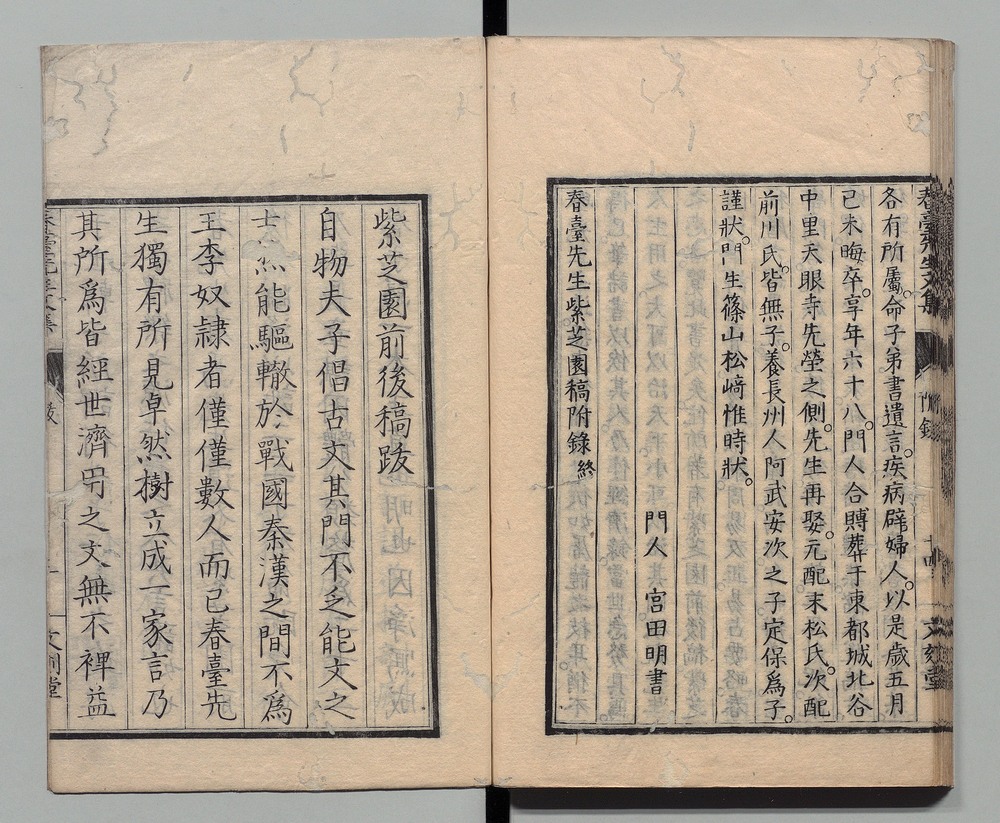 春臺先生文集 附錄 十四 文刻堂
各有所屬。命子弟書遺言。疾病辟婦人。以是歲五月
己未晦卒。享年六十八。門人合賻葬于東都城北谷
中里天眼寺先塋之側。先生再娶。元配末松氏。次配
前川氏。皆無子。養長州人阿武安次之子定保爲子。
謹狀。門生篠山松﨑惟時狀。
門人宮田明書
春臺先生紫芝園稿附錄終
紫芝園前後稿跋
自物夫子倡古文其門不乏能文之
士然能驅轍於戰國秦漢之間不爲
王李奴隷者僅僅數人而已春臺先
生獨有所見卓然樹立成一家言乃
其所爲皆經世濟民之文無不裨益
春臺先生文集 跋 一 文刻堂